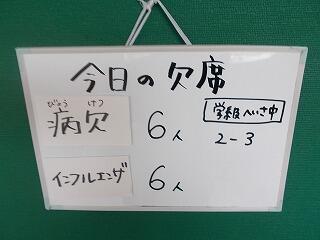 今日の欠席
びょう けつ
病欠 6人
学級へいさ中
2-3
インフルエンザ 6人